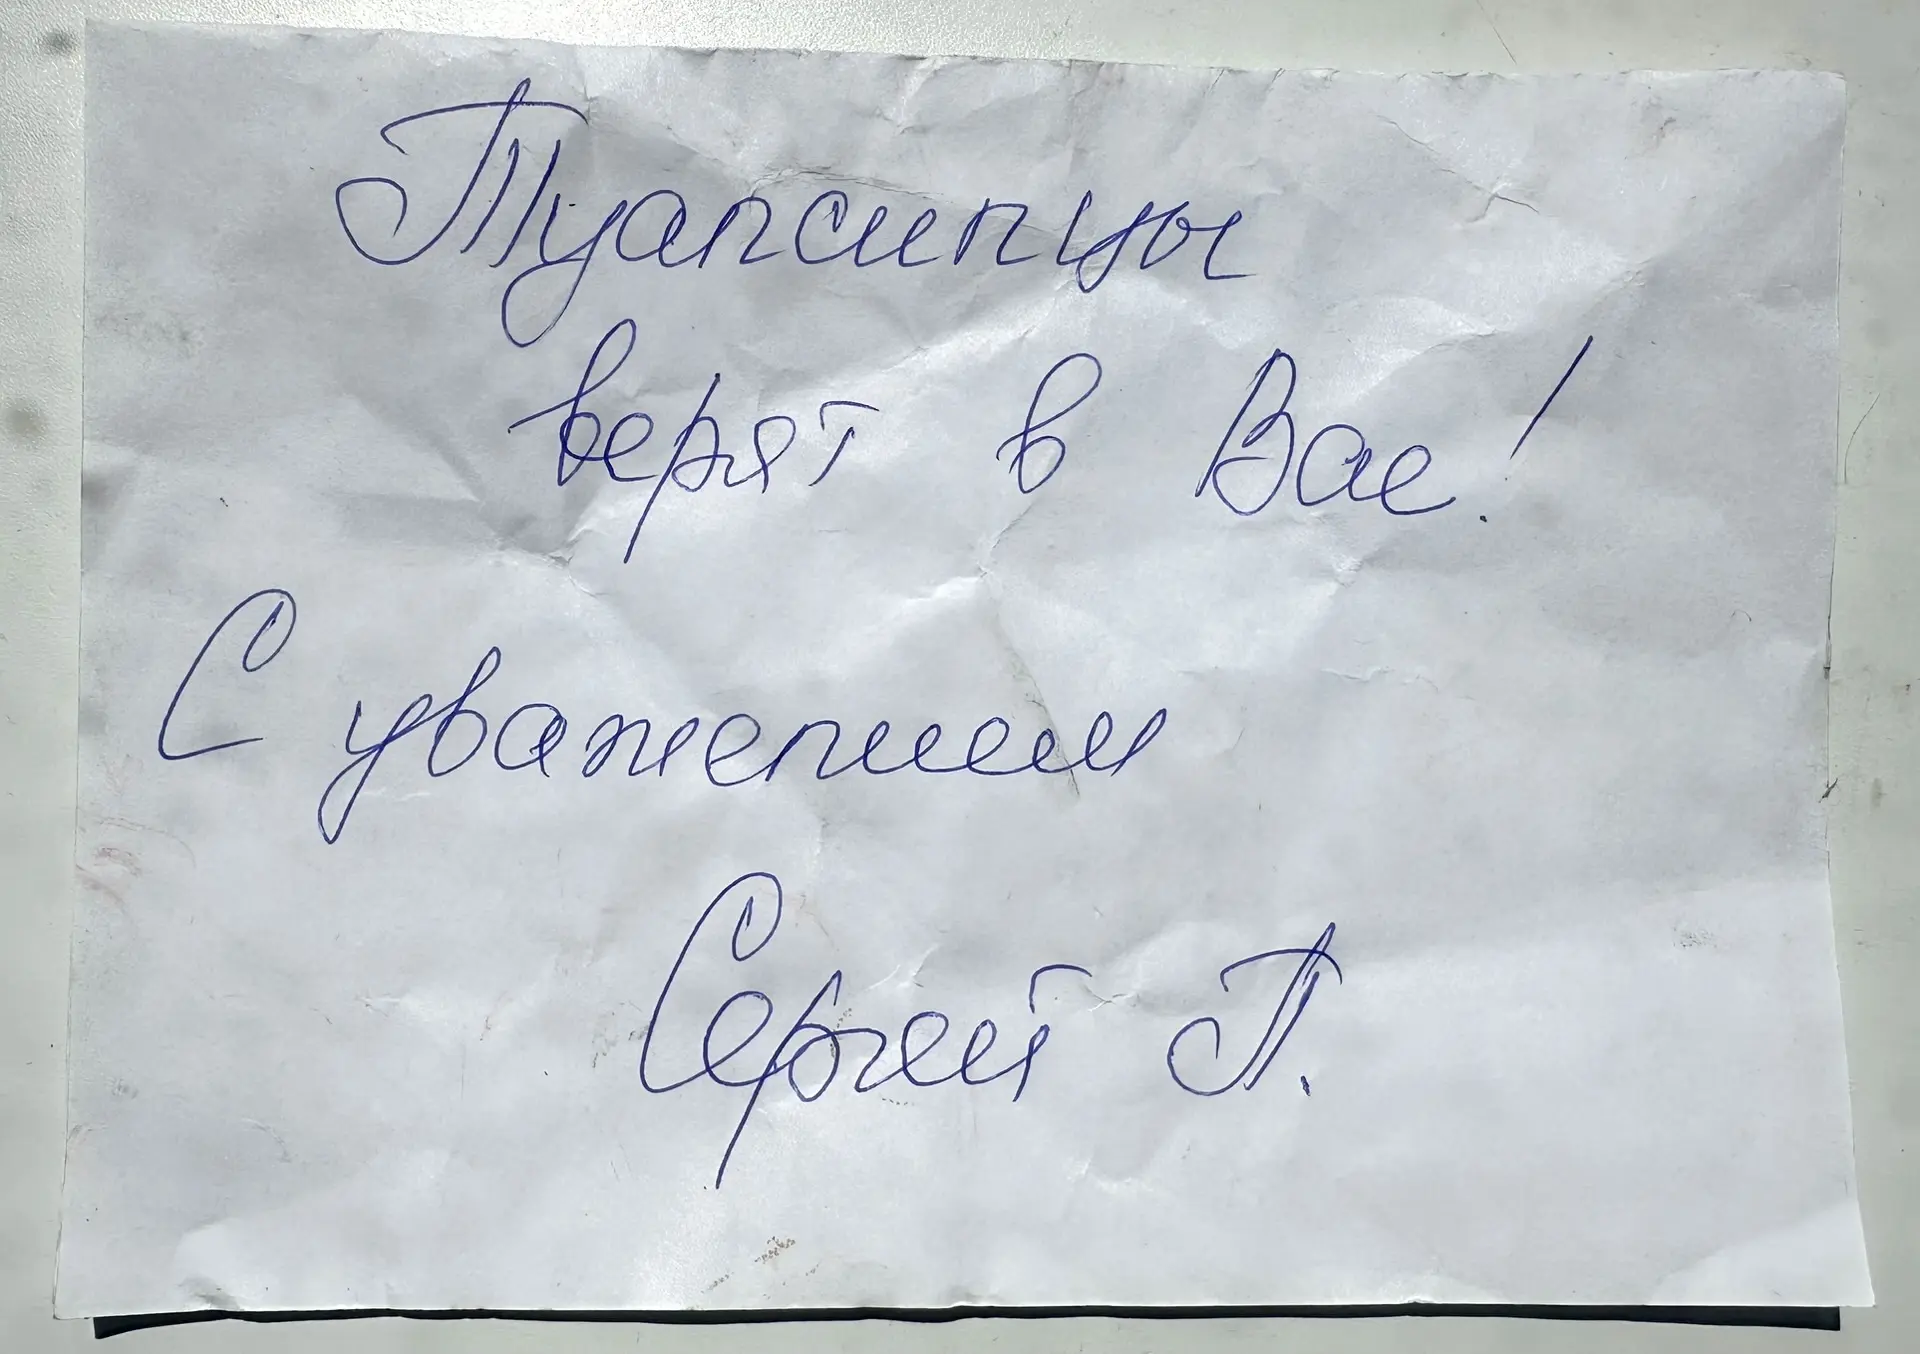 Туапсинцы
верят в Вас!
С уважением
Сергей П.